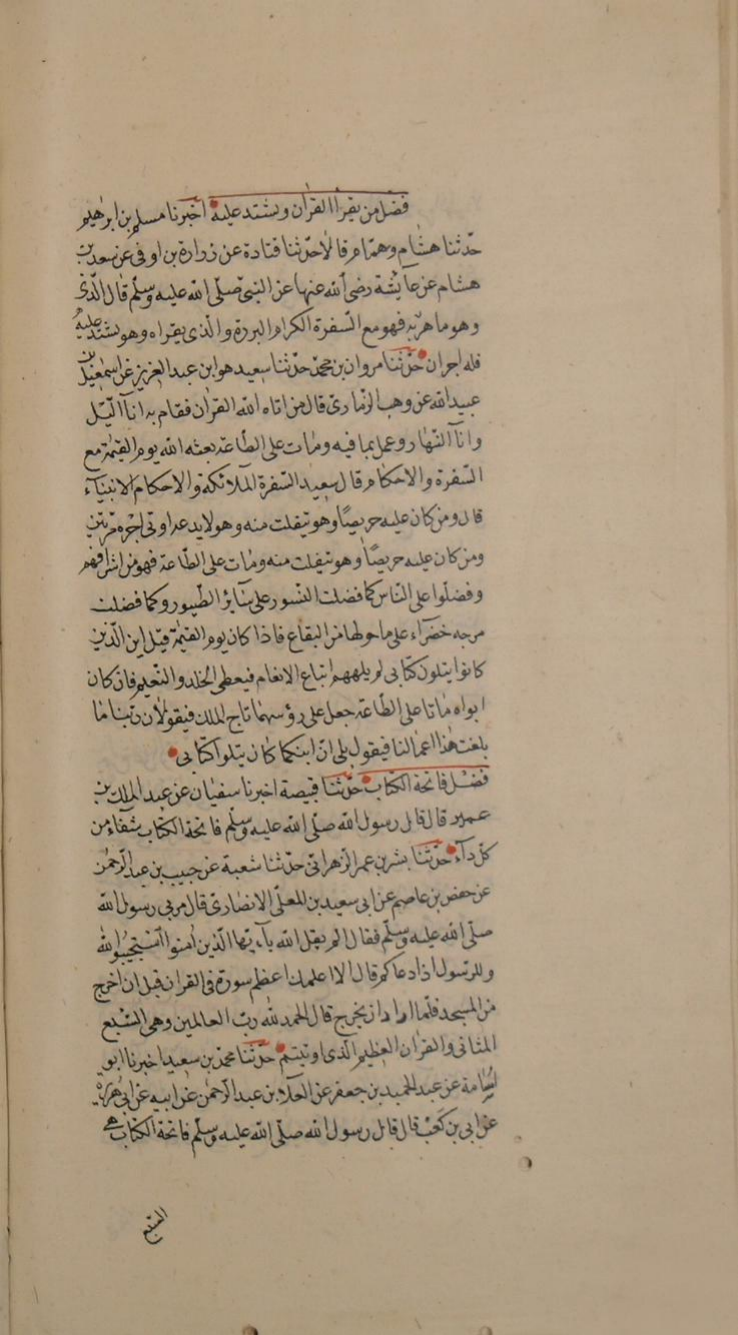 فضل من يقرأ القرآن ويشتد عليه اخبرنا مسلم بن ابرهيم
حدثنا هشام وهمام قالا حدثنا قتادة عن زرارة بن اوفى عن سعد بن
هشام عن عايشة رضى الله عنها عن النبى صلى الله عليه وسلم قال الذى
وهو ماهر به فهو مع السفرة الكرام البررة والذى يقراه وهو يشتد عليه
فله اجران حدثنا مروان بن محمد حدثنا سعيد هو ابن عبد العزيز عن اسمعيل بن
عبيد الله عن وهب الذمارى قال من اتاه الله القران فقام به اناآ الليل
واناآ النهار وعمل بما فيه ومات على الطاعة بعثه الله يوم القيمة مع
السفرة والاحكام قال سعيد السفرة الملائكة والاحكام الانبياء
قال ومن كان عليه حريصا وهو يتفلت منه وهو لا يدعه اوتى اجره مرتين
ومن كان عليه حريصا وهو يتفلت منه ومات على الطاعة فهو من اشرافهم
وفضلوا على الناس كما فضلت النسور على سائر الطيور وكما فضلت
مرجه خضراء على ما حولها من البقاع فاذا كان يوم القيمة قيل اين الذين
كانوا يتلون كتابى لم يلههم اتباع الانعام فيعطى الخلد والنعيم فان كان
ابواه ماتا على الطاعة جعل على رؤسهما تاج الملك فيقولان ربنا ما
بلغت هذا اعمالنا فيقول بلى ان ابنكما كان يتلوا كتابى
فضل فاتحة الكتاب حدثنا قبيصة اخبرنا سفيان عن عبد الملك بن
عمير قال قال رسول الله صلى الله عليه وسلم فاتحة الكتاب شفاء من
كل داء حدثنا بشر بن عمر الزهرانى حدثنا شعبة عن حبيب بن عبد الرحمن
عن حفص بن عاصم عن ابى سعيد بن المعلى الانصارى قال مر بى رسول الله
صلى الله عليه وسلم فقال الم يقل الله يآ ايها الذين امنوا استجيبوا لله
وللرسول اذا دعاكم قال الا اعلمك اعظم سورة فى القران قبل ان اخرج
من المسجد فلما اراد ان يخرج قال الحمد لله رب العالمين وهى السبع
المثانى والقران العظيم الذى اوتيتم حدثنا محمد بن سعيد اخبرنا ابو
اسامة عن عبد الحميد بن جعفر عن العلا بن عبد الرحمن عن ابيه عن ابى هريرة
عن ابى بن كعب قال قال رسول الله صلى الله عليه وسلم فاتحة الكتاب هى
السبع